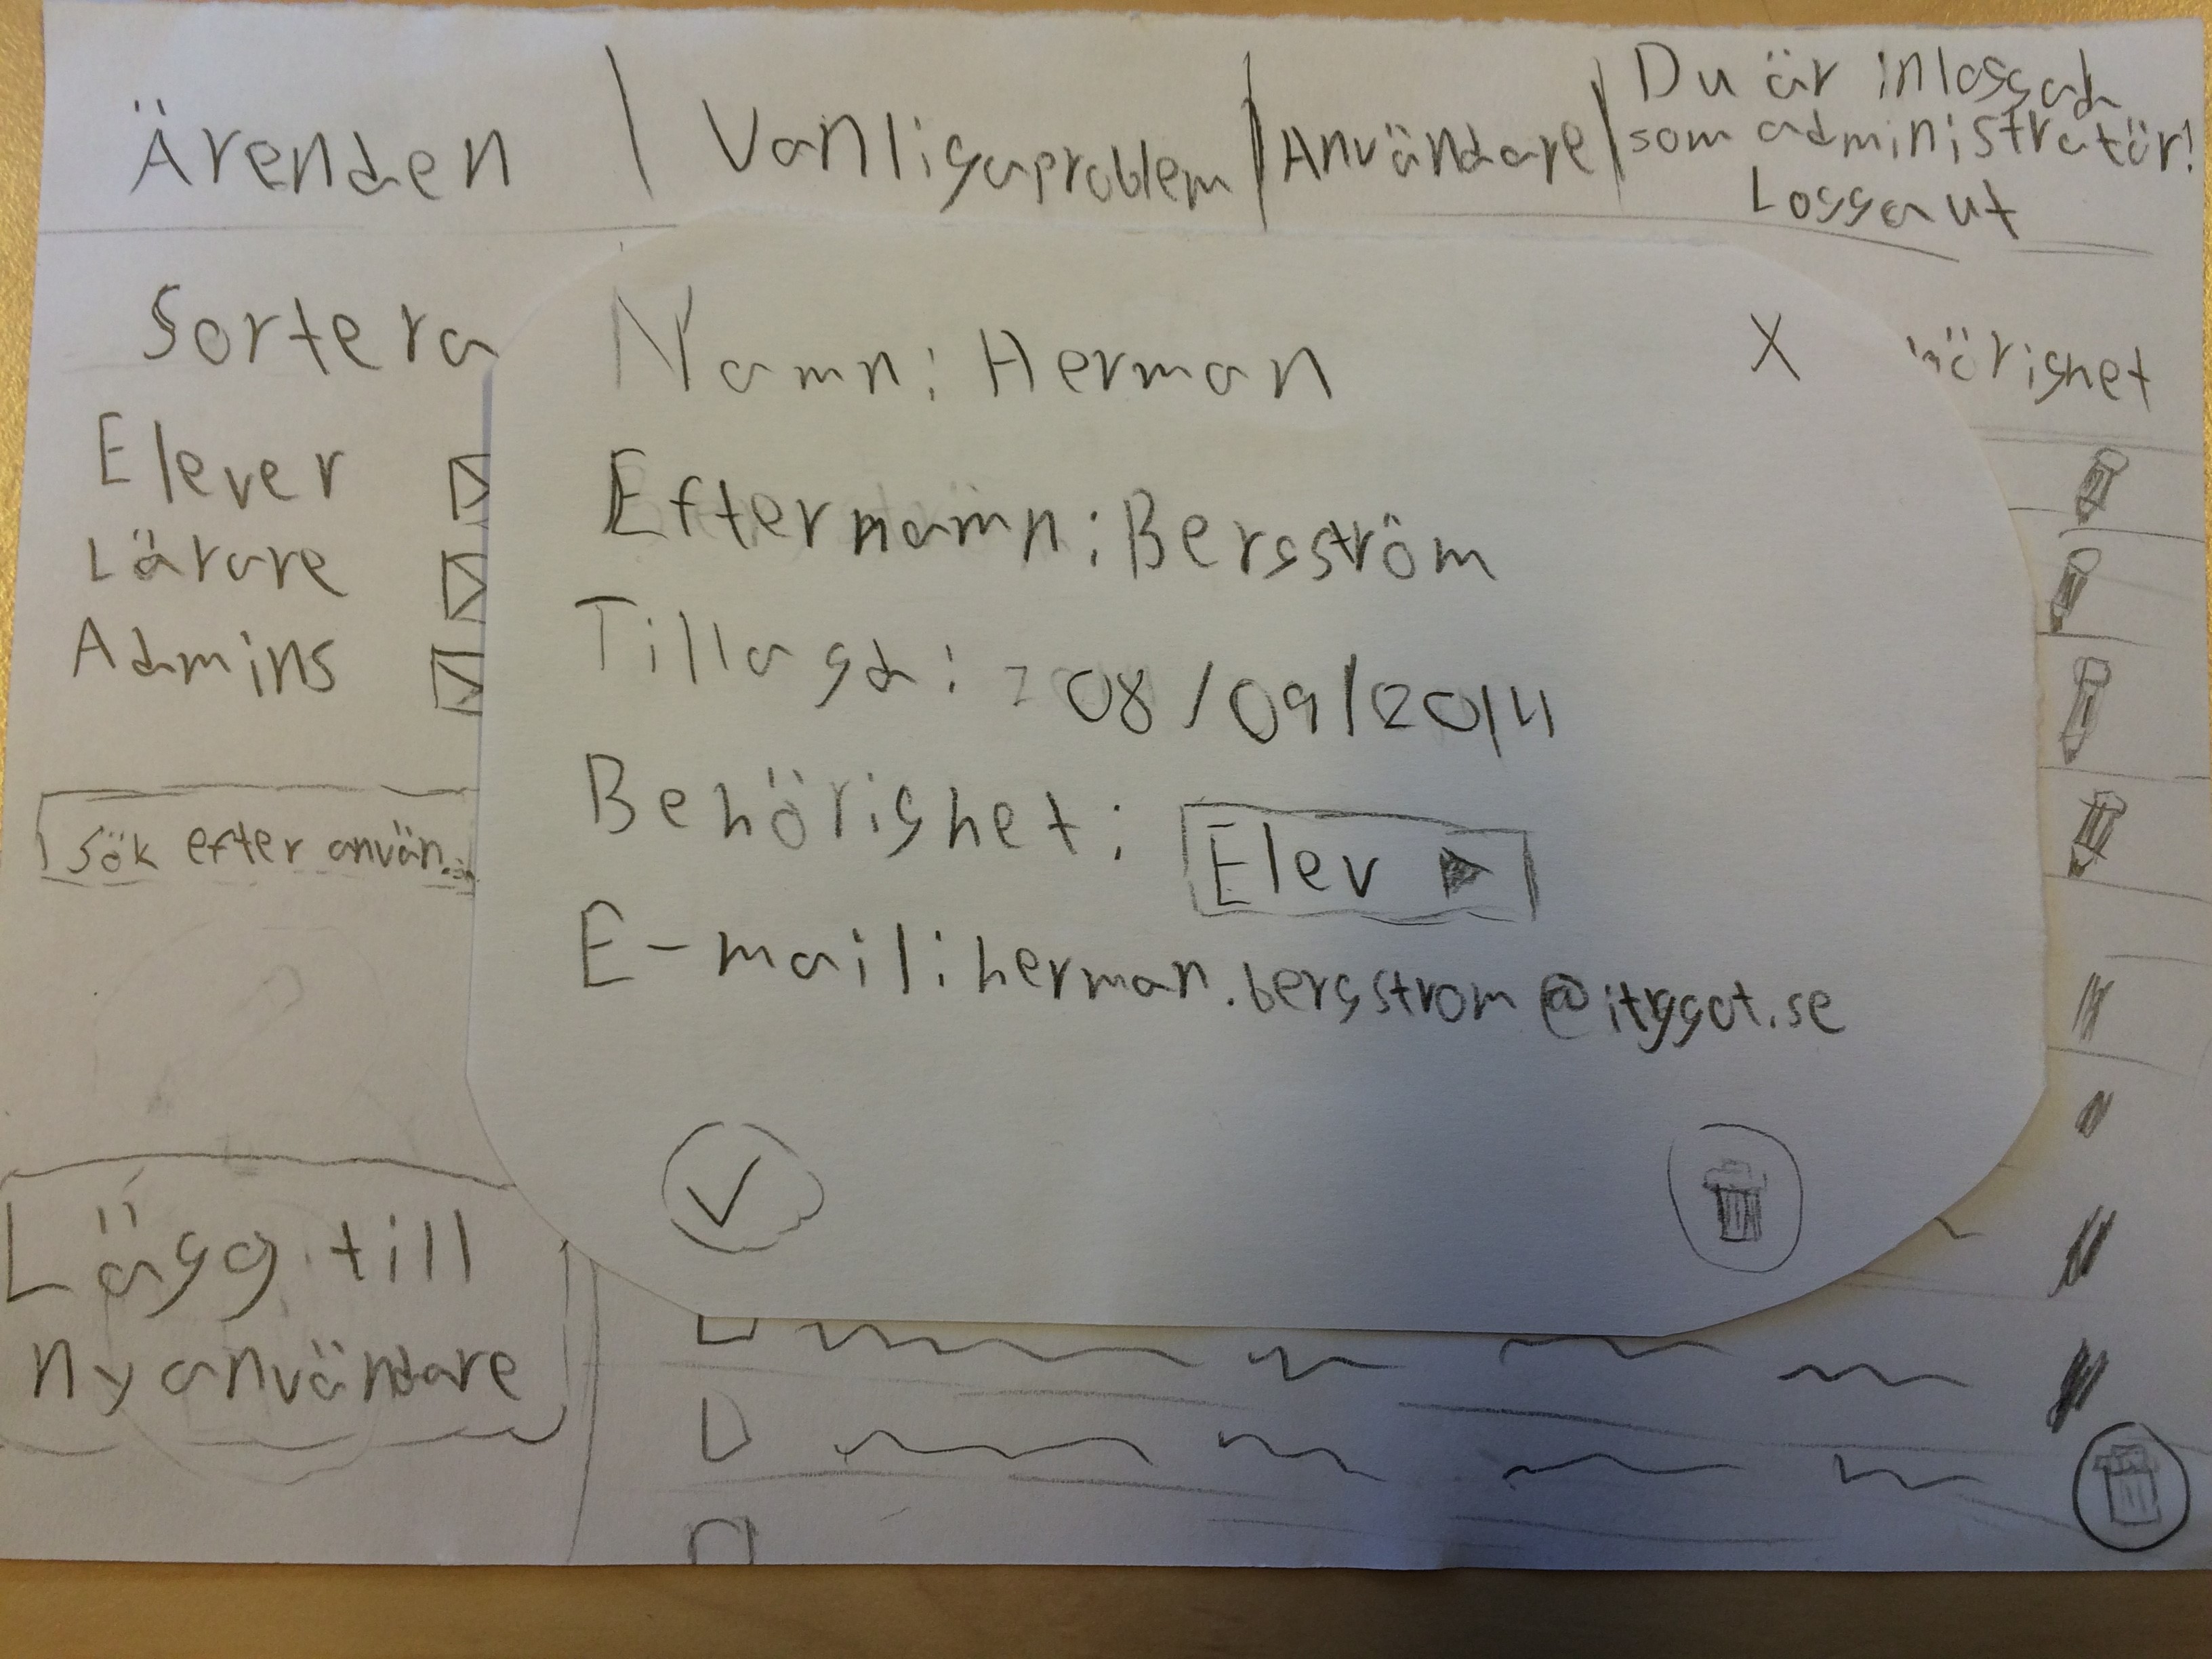 Ärenden | Vanligaproblem | Användare | Du är inloggad
som administratör!
Logga ut
Sortera
Elever
Lärare
Admins
Sök efter använ...
Lägg till
ny användare
Namn: Herman X
Efternamn: Bergström
Tillagd: 08/09/2014
Behörighet: Elev
E-mail: herman.bergstrom@itggot.se
hörighet